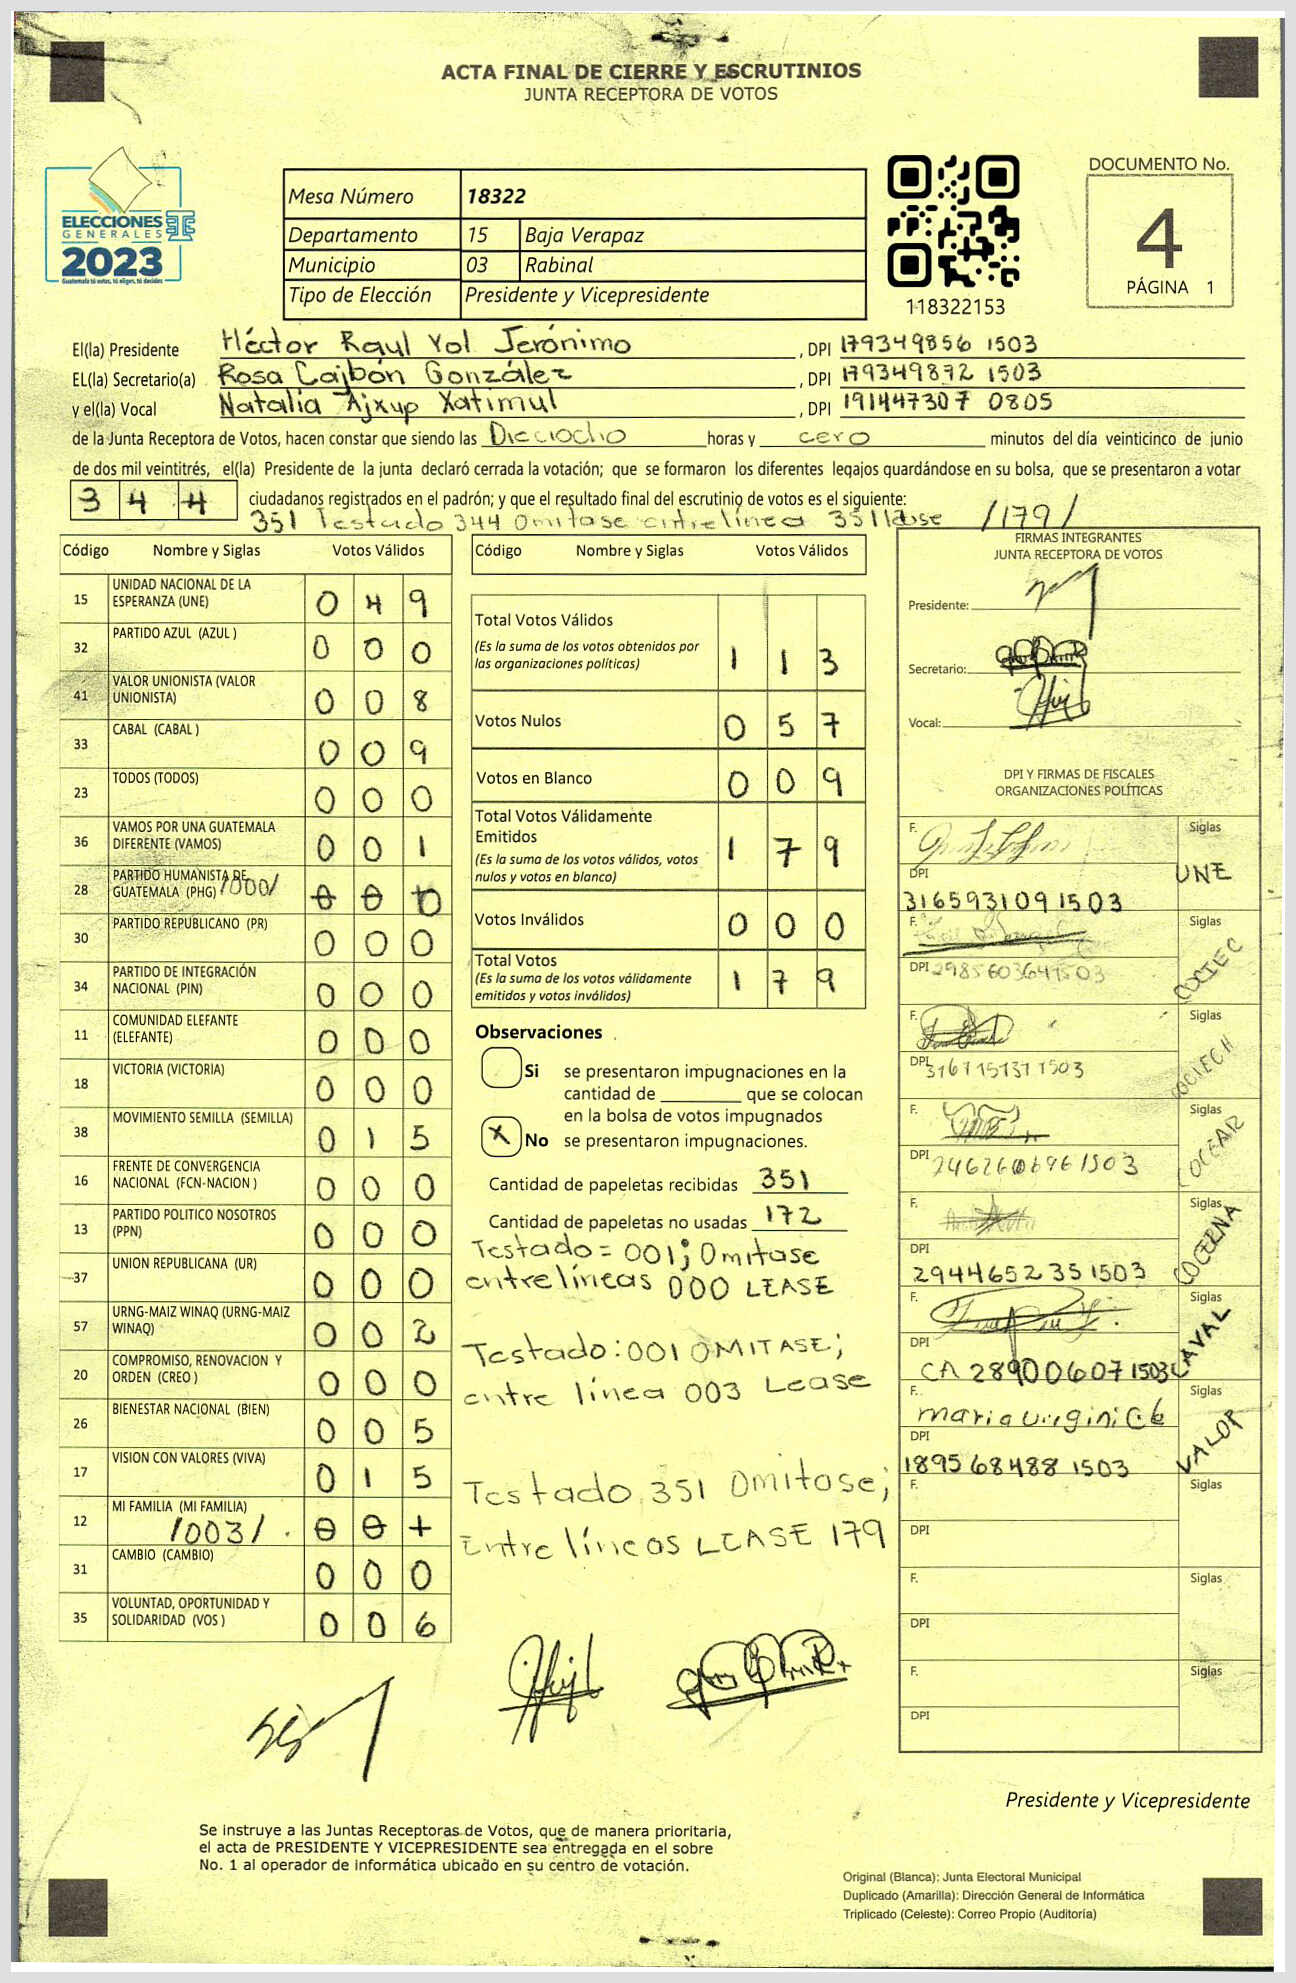 ACTA FINAL DE CIERRE Y ESCRUTINIOS
JUNTA RECEPTORA DE VOTOS
ELECCIONES
GENERALES
2023
Guatemala tú votas, tú eliges, tú decides
Mesa Número 18322
Departamento 15 Baja Verapaz
Municipio 03 Rabinal
Tipo de Elección Presidente y Vicepresidente
118322153
DOCUMENTO No.
4
PÁGINA 1
El(la) Presidente Héctor Raúl Yol Jerónimo, DPI 179349856 1503
EL(la) Secretario(a) Rosa Cajbón González, DPI 179349872 1503
y el(la) Vocal Natalia Ajxup Xatimul, DPI 191447307 0805
de la Junta Receptora de Votos, hacen constar que siendo las Dieciocho horas y cero minutos del día veinticinco de junio
de dos mil veintitrés, el(la) Presidente de la junta declaró cerrada la votación; que se formaron los diferentes legajos guardándose en su bolsa, que se presentaron a votar
344 ciudadanos registrados en el padrón; y que el resultado final del escrutinio de votos es el siguiente:
351 Testado 344 Omitase entrelínea 351 lease /179/
Código Nombre y Siglas Votos Válidos
15 UNIDAD NACIONAL DE LA ESPERANZA (UNE) 0 4 9
32 PARTIDO AZUL (AZUL ) 0 0 0
41 VALOR UNIONISTA (VALOR UNIONISTA) 0 0 8
33 CABAL (CABAL ) 0 0 9
23 TODOS (TODOS) 0 0 0
36 VAMOS POR UNA GUATEMALA DIFERENTE (VAMOS) 0 0 1
28 PARTIDO HUMANISTA DE GUATEMALA (PHG) /000/ 0 0
30 PARTIDO REPUBLICANO (PR) 0 0 0
34 PARTIDO DE INTEGRACIÓN NACIONAL (PIN) 0 0 0
11 COMUNIDAD ELEFANTE (ELEFANTE) 0 0 0
18 VICTORIA (VICTORIA) 0 0 0
38 MOVIMIENTO SEMILLA (SEMILLA) 0 1 5
16 FRENTE DE CONVERGENCIA NACIONAL (FCN-NACION ) 0 0 0
13 PARTIDO POLITICO NOSOTROS (PPN) 0 0 0
37 UNION REPUBLICANA (UR) 0 0 0
57 URNG-MAIZ WINAQ (URNG-MAIZ WINAQ) 0 0 2
20 COMPROMISO, RENOVACION Y ORDEN (CREO ) 0 0 0
26 BIENESTAR NACIONAL (BIEN) 0 0 5
17 VISION CON VALORES (VIVA) 0 1 5
12 MI FAMILIA (MI FAMILIA) /003/ 0 0 1
31 CAMBIO (CAMBIO) 0 0 0
35 VOLUNTAD, OPORTUNIDAD Y SOLIDARIDAD (VOS ) 0 0 6
Código Nombre y Siglas Votos Válidos
Total Votos Válidos 1 1 3
(Es la suma de los votos obtenidos por las organizaciones políticas)
Votos Nulos 0 5 7
Votos en Blanco 0 0 9
Total Votos Válidamente Emitidos 1 7 9
(Es la suma de los votos válidos, votos nulos y votos en blanco)
Votos Inválidos 0 0 0
Total Votos 1 7 9
(Es la suma de los votos válidamente emitidos y votos inválidos)
Observaciones
Si se presentaron impugnaciones en la
cantidad de ________ que se colocan
en la bolsa de votos impugnados
X No se presentaron impugnaciones.
Cantidad de papeletas recibidas 351
Cantidad de papeletas no usadas 172
Testado = 001; Omitase
entrelíneas 000 LEASE
Testado: 001 OMITASE;
entre línea 003 Lease
Testado 351 Omitase;
Entre líneas LEASE 179
FIRMAS INTEGRANTES
JUNTA RECEPTORA DE VOTOS
Presidente:
Secretario:
Vocal:
DPI Y FIRMAS DE FISCALES
ORGANIZACIONES POLÍTICAS
F. Siglas UNE
DPI 316593109 1503
F. Siglas COCIEC
DPI 298560364 1503
F. Siglas COCIECH
DPI
F. Siglas COCEAR
DPI
F. Siglas COCERNA
DPI 294465235 1503
F. Siglas
DPI CA 289006071503
F. Siglas VALOR
DPI 189568488 1503
F. Siglas
DPI
F. Siglas
DPI
F. Siglas
DPI
Presidente y Vicepresidente
Se instruye a las Juntas Receptoras de Votos, que de manera prioritaria,
el acta de PRESIDENTE Y VICEPRESIDENTE sea entregada en el sobre
No. 1 al operador de informática ubicado en su centro de votación.
Original (Blanca): Junta Electoral Municipal
Duplicado (Amarilla): Dirección General de Informática
Triplicado (Celeste): Correo Propio (Auditoría)